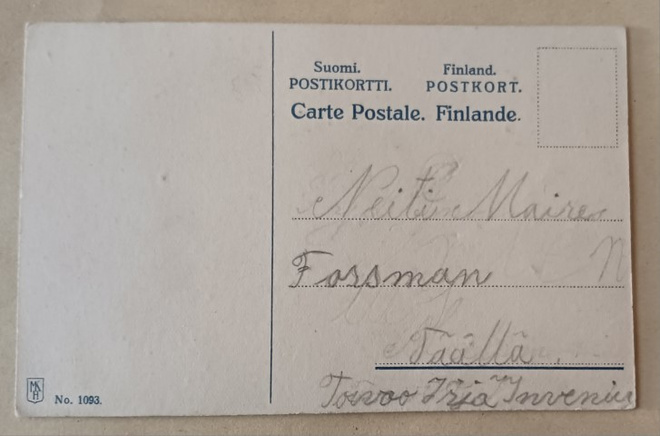 Suomi. Finland.
POSTIKORTTI. POSTKORT.
Carte Postale. Finlande.
Neiti Maire
Forsman
Täällä.
Toivoo Irja Invenius
No. 1093.